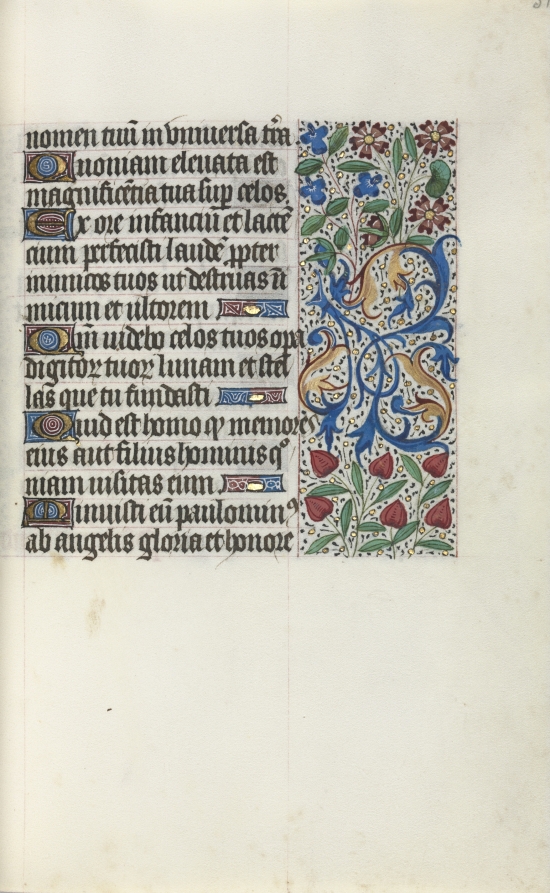 nomen tuū in vniuersa tr̄a
Quoniam eleuata est
magnificētia tua sup celos
Ex ore infanciū et lactē
cium perfecisti laudē ꝓpter
inimicos tuos ut destruas īī
micum et ultorem
Qm̄ uidebo celos tuos opa
digitoꝝ tuoꝝ lunam et stel
las que tu fundasti
Quid est homo ꝙ memor es
eius aut filius hominis qo
niam uisitas eum
Minuisti eū paulomin⁹
ab angelis gloria et honore